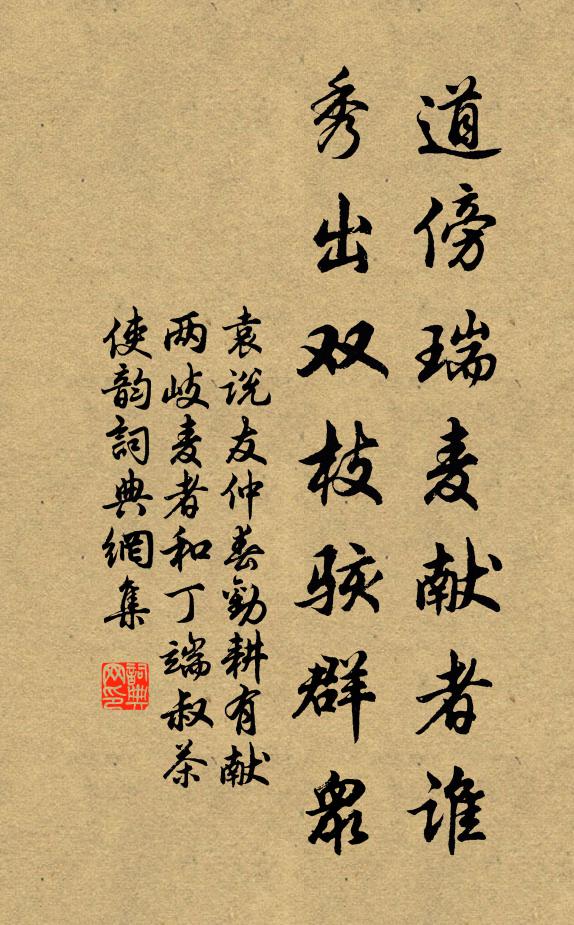 道傍瑞麦献者谁
秀出双枝骇群眾
袁说友仲春劝耕有献
两岐麦者和丁端叔茶
使韵詞典網集
詞典
网印